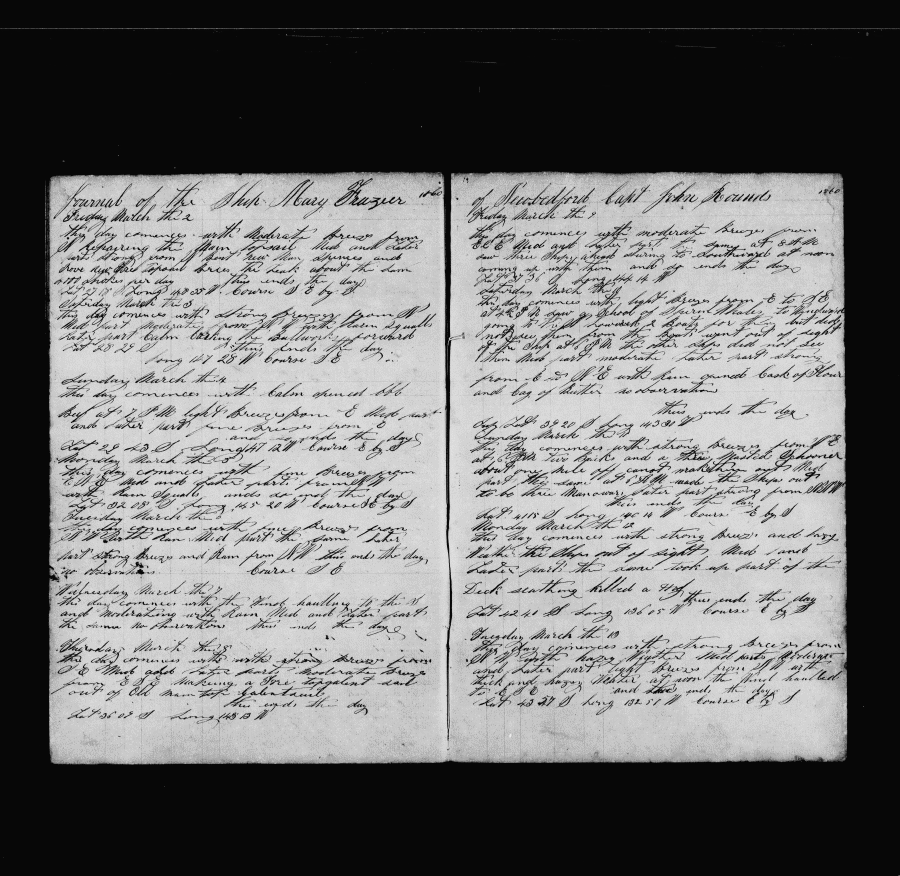 Journal of the Ship Mary Frazier 1860
Friday March the 2
this day comences with Moderate Breezes from
N repairing the Main topsail Mid and later
parts strong from N bent new Main Spencer and
the leak about the same
strokes per day this ends the day
Lat 27 18 S Long 148 55 W Course S E by S
Saturday March the 3
this day comences with strong Breezes from N
Mid part Moderate from N with Rain Squalls
later part Calm the Bulwork forward
Lat 28 29 S this ends the day
Long 147 28 W Course S E
Sunday March the 4
this day comences with Calm opened bbb
Beef at 7 P M light Breezes from E Mid part
and later part fine Breezes from E
and so ends the day
Lat 29 23 S Long 147 12 W Course E by S
Monday March the 5
this day comences with fine breeze from
E N E Mid and later part from N N
with Rain Squals and so end the day
Lat 32 08 S Long 145 20 W Course S E by S
Tuesday March the 6
this day comences with fine Breezes from
N W with Rain Mid part the same later
part strong Breezes and Rain from N W this ends the day
no observations Course S E
Wednesday March the 7
this day comences with the Wind haulling to the S
and moderating with Rain Mid and later part
the same no observations this ends the day
Thursday March the 8
this day comences with with strong breezes from
S E Mid and later part moderate breeze
from E S E Making a Fore topgalent sail
out of Old main top Galentsail
this ends the day
Lat 36 07 S Long 145 13 W
of Newbedford Capt John Rounds 1860
Friday March the 9
this day comences with moderate breezes from
E S E Mid and later part the same at 8 A M
saw three Ships ahead stering to Southward at noon
coming up with them and so ends the day
Lat 37 36 S Long 144 14 W
Saturday March the 10
this day comences with light breezes from E to S E
at 4 P M saw a School of Sperm Whales to Windward
going to N E lowered 2 Boats for them but did
not see them from the boats again lost sight
of the Ship at 6 P M the other Ships did not see
them Mid part moderate later part strong
from E to N E with Rain opened Cask of Flour
and Cag of Butter no observation
this ends the day
Lat 39 20 S Long 143 31 W
Sunday March the 11
this day comences with strong breezes from N E
at 6 P M two Barks and a three Masted Schooner
about one mile off canot make them out Mid
part the same at 6 A M made the Ships out
to be three Manowars later part strong from
this ends the day
Lat 41 15 S Long 140 14 W Course E by S
Monday March the 12
this day comences with strong Breezes and hazy
Weather the Ships out of sight Mid and
Later parts the same took up part of the
Deck seathing killed a Hog
this ends the day
Lat 42 40 S Long 136 05 W Course E by S
Tuesday March the 13
this day comences with strong breezes from
N W with hazy Wether Mid part
and later part light breezes from N with
thick and hazey Wether at noon the Wind haulled
to E S E and so ends the day
Lat 43 37 S Long 132 51 W Course E by S